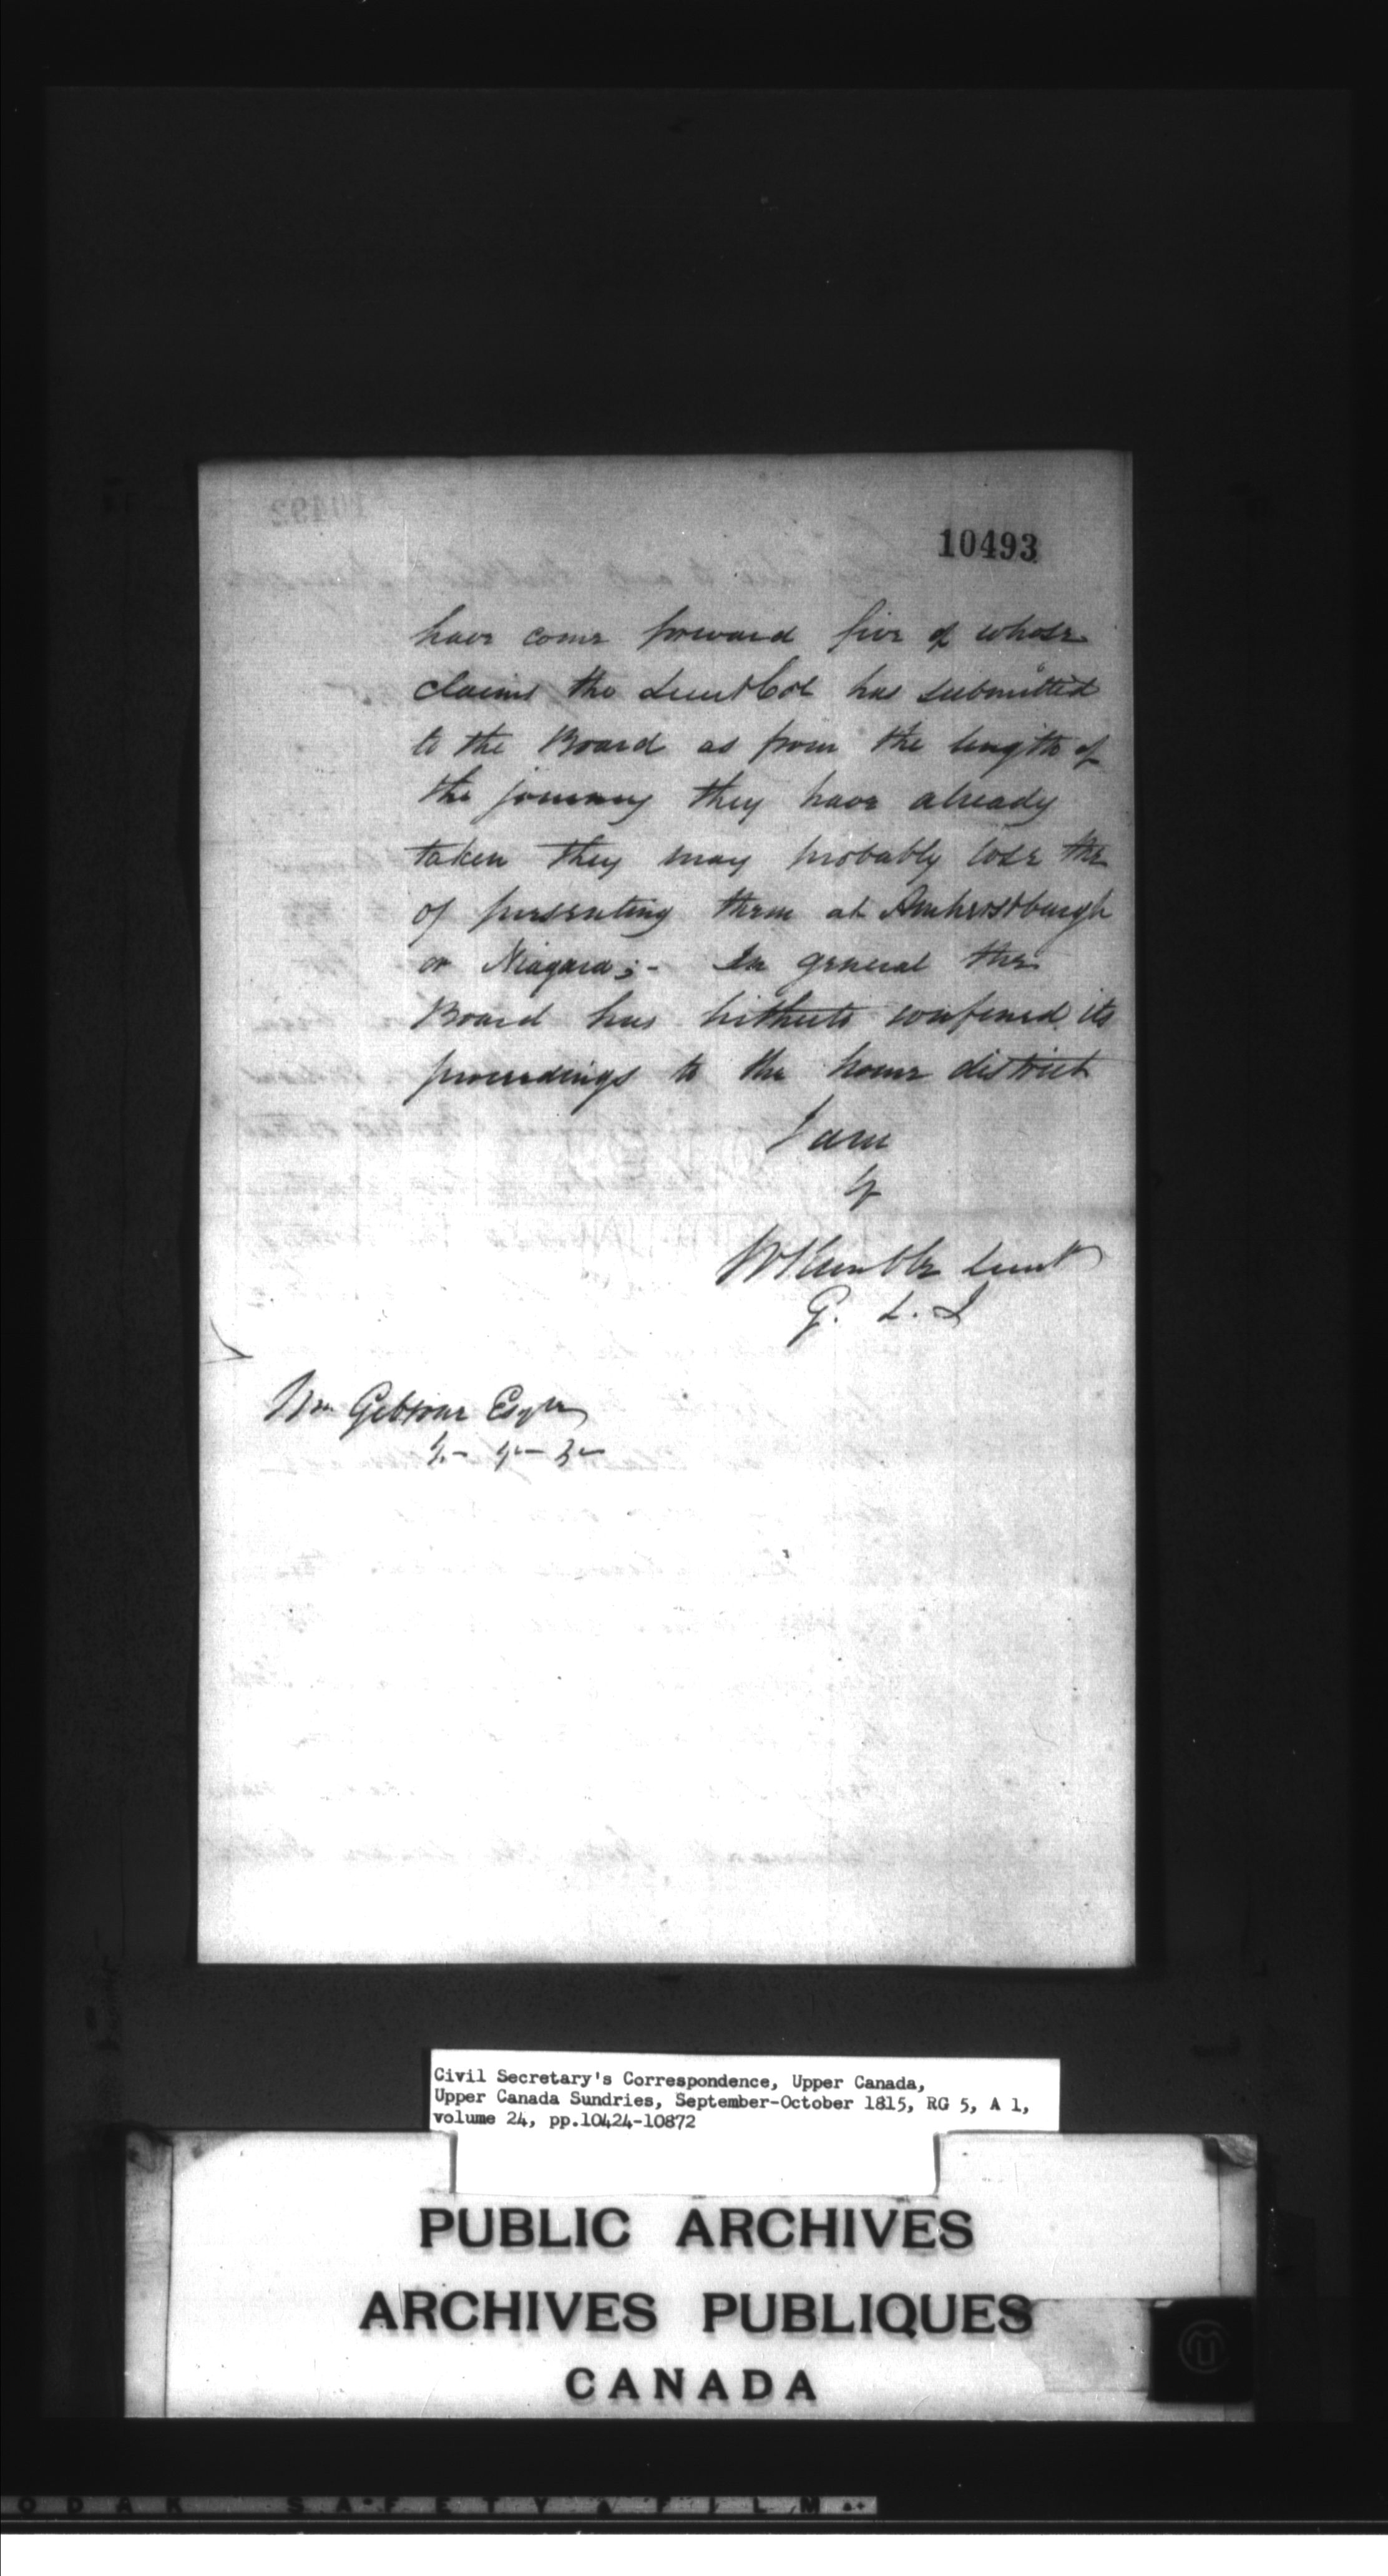 10493
have come forward five of whose
claims the Lieut Col has submitted
to the Board as from the length of
the journey they have already
taken they may probably lose the
of presenting them at Amherstburgh
or Niagara;- In general the
Board has hitherto confined its
proceedings to the home district
I am
&
W Kemble Lieut
G. L. I
Wm Gibson Esqr
&- &- &-
Civil Secretary's Correspondence, Upper Canada,
Upper Canada Sundries, September-October 1815, RG 5, A 1,
volume 24, pp.10424-10872
PUBLIC ARCHIVES
ARCHIVES PUBLIQUES
CANADA
ODAK SAFETY FILM